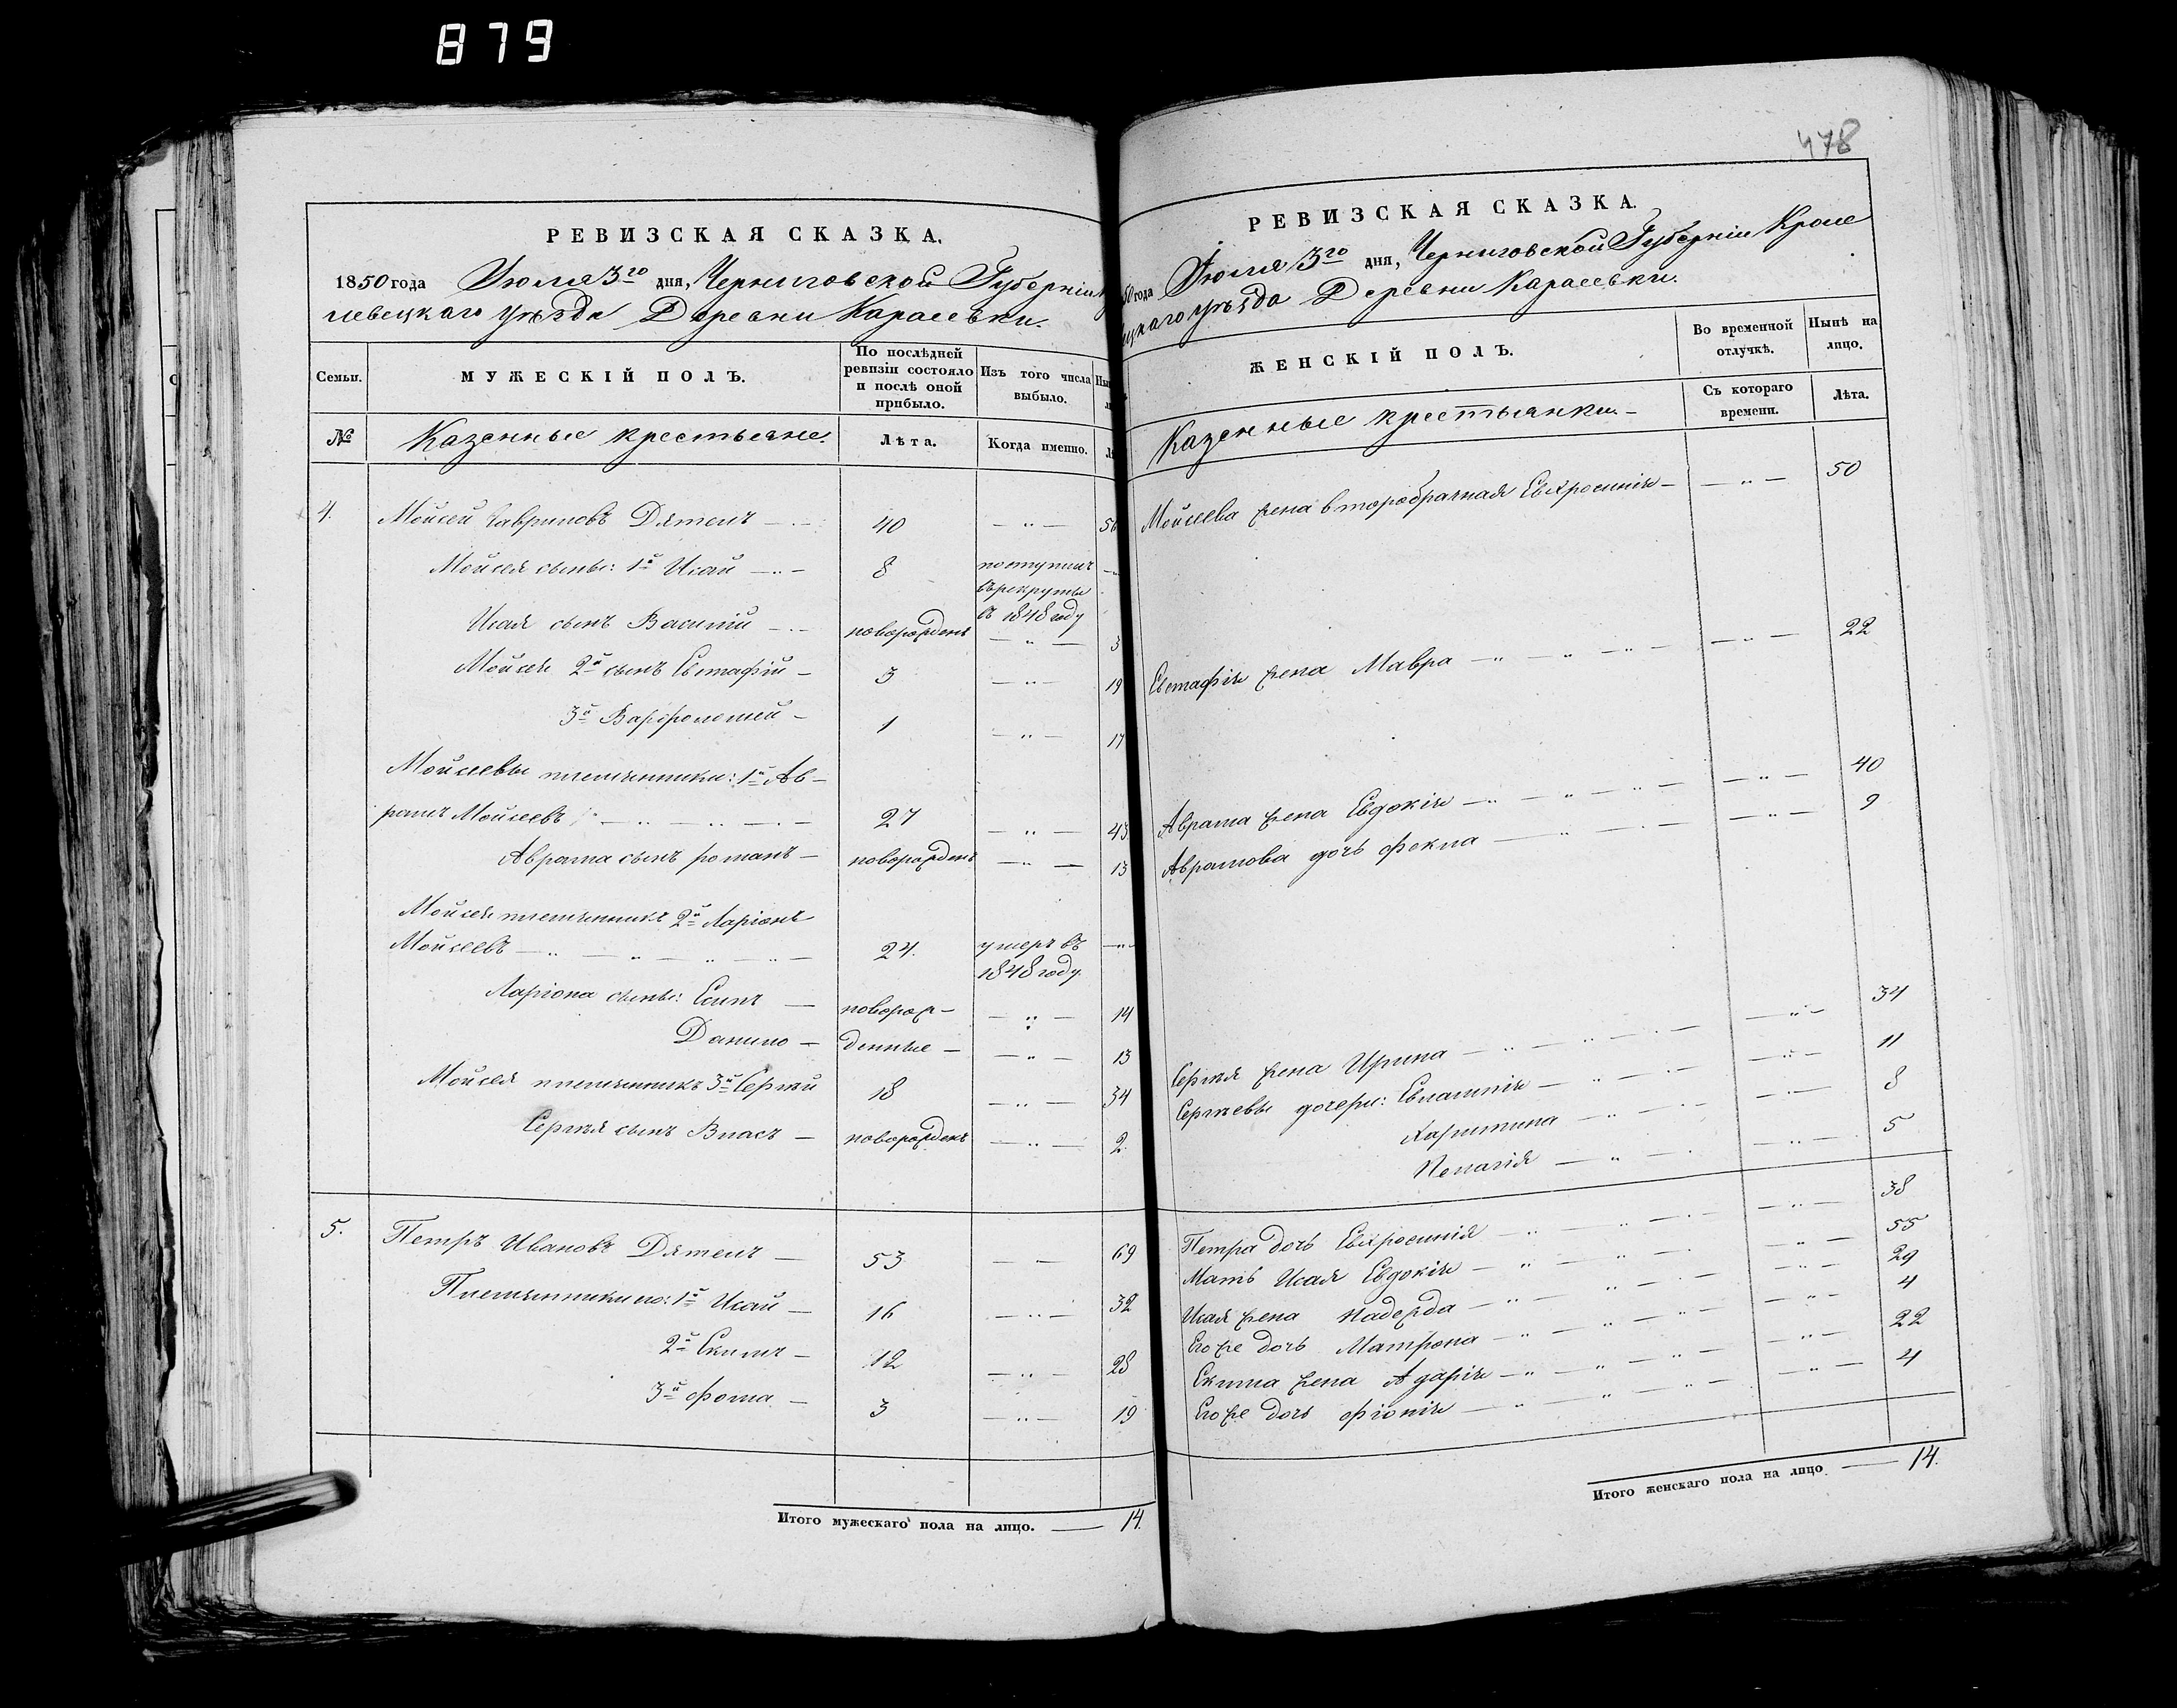 879
РЕВИЗСКАЯ СКАЗКА.
1850 года Іюля 3го дня, Черниговской Губерніи К
левецкаго уѣзда Деревни Карасевки.
Семьи.
МУЖЕСКІЙ ПОЛЪ.
По послѣдней ревизіи состояло и послѣ оной прибыло.
Изъ того числа выбыло.
№
Казенные крестьяне.
Лѣта.
Когда именно.
4. Мойсей Гавриловъ Дятелъ — 40 — „ — 56
Мойсея сыны: 1й Исай — „ — 8 поступилъ
въ рекруты
въ 1848 году
Исая сынъ Василій — новорожденъ — „ — 3
Мойсея 2й сынъ Евстафій — 3 — „ — 19
3й Варфоломей — 1 — „ — 17
Мойсеевы племянники: 1й Ав-
рамъ Мойсеевъ — „ — 27 — „ — 43
Аврама сынъ романъ — новорожденъ — „ — 13
Мойсея племянникъ 2й Ларіонъ
Мойсеевъ — „ — „ — „ — 24. умеръ въ — „ —
1848 году.
Ларіона сыны: Есипъ — новорож- — „ — 14
Данило — денные — — „ — 13
Мойсея племянникъ 3й Сергѣй 18 — „ — 34
Сергѣя сынъ Власъ — новорожденъ — „ — 2.
5. Петръ Ивановъ Дятелъ — 53 — — 69
Племянники его: 1й Исай — 16 — „ — 32
2й Екимъ — 12 — „ — 28
3й Фома — 3 — „ — 19
Итого мужескаго пола на лицо. — 14.
478
РЕВИЗСКАЯ СКАЗКА.
50 года Іюля 3го дня, Черниговской Губерніи Кроле
ецкаго уѣзда Деревни Карасевки.
ЖЕНСКІЙ ПОЛЪ.
Во временной отлучкѣ.
Нынѣ на лицо.
Казенные крестьянки. —
Съ котораго времени.
Лѣта.
Мойсеева жена второбрачная Евхросинія — — „ — 50
Евстафія жена Мавра — „ — „ — „ — — „ — 22
Аврама жена Евдокія — „ — „ — „ — — „ — 40
Аврамова дочь Фекла — „ — — „ — 9
Сергѣя жена Ирина — „ — „ — — „ — 34
Сергѣевы дочери: Евлампія — „ — — „ — 11
Харитина — „ — — „ — 8
Пелагія — „ — — „ — 5
Петра дочь Евхросинія — „ — „ — — „ — 38
Мать Исая Евдокія — „ — „ — — „ — 55
Исая жена Надежда — „ — „ — — „ — 29
Его же дочь Матрона — „ — „ — — „ — 4
Екима жена Адарія — „ — „ — „ — — „ — 22
Его же дочь Фіонія — „ — „ — „ — — „ — 4
Итого женскаго пола на лицо — 14.